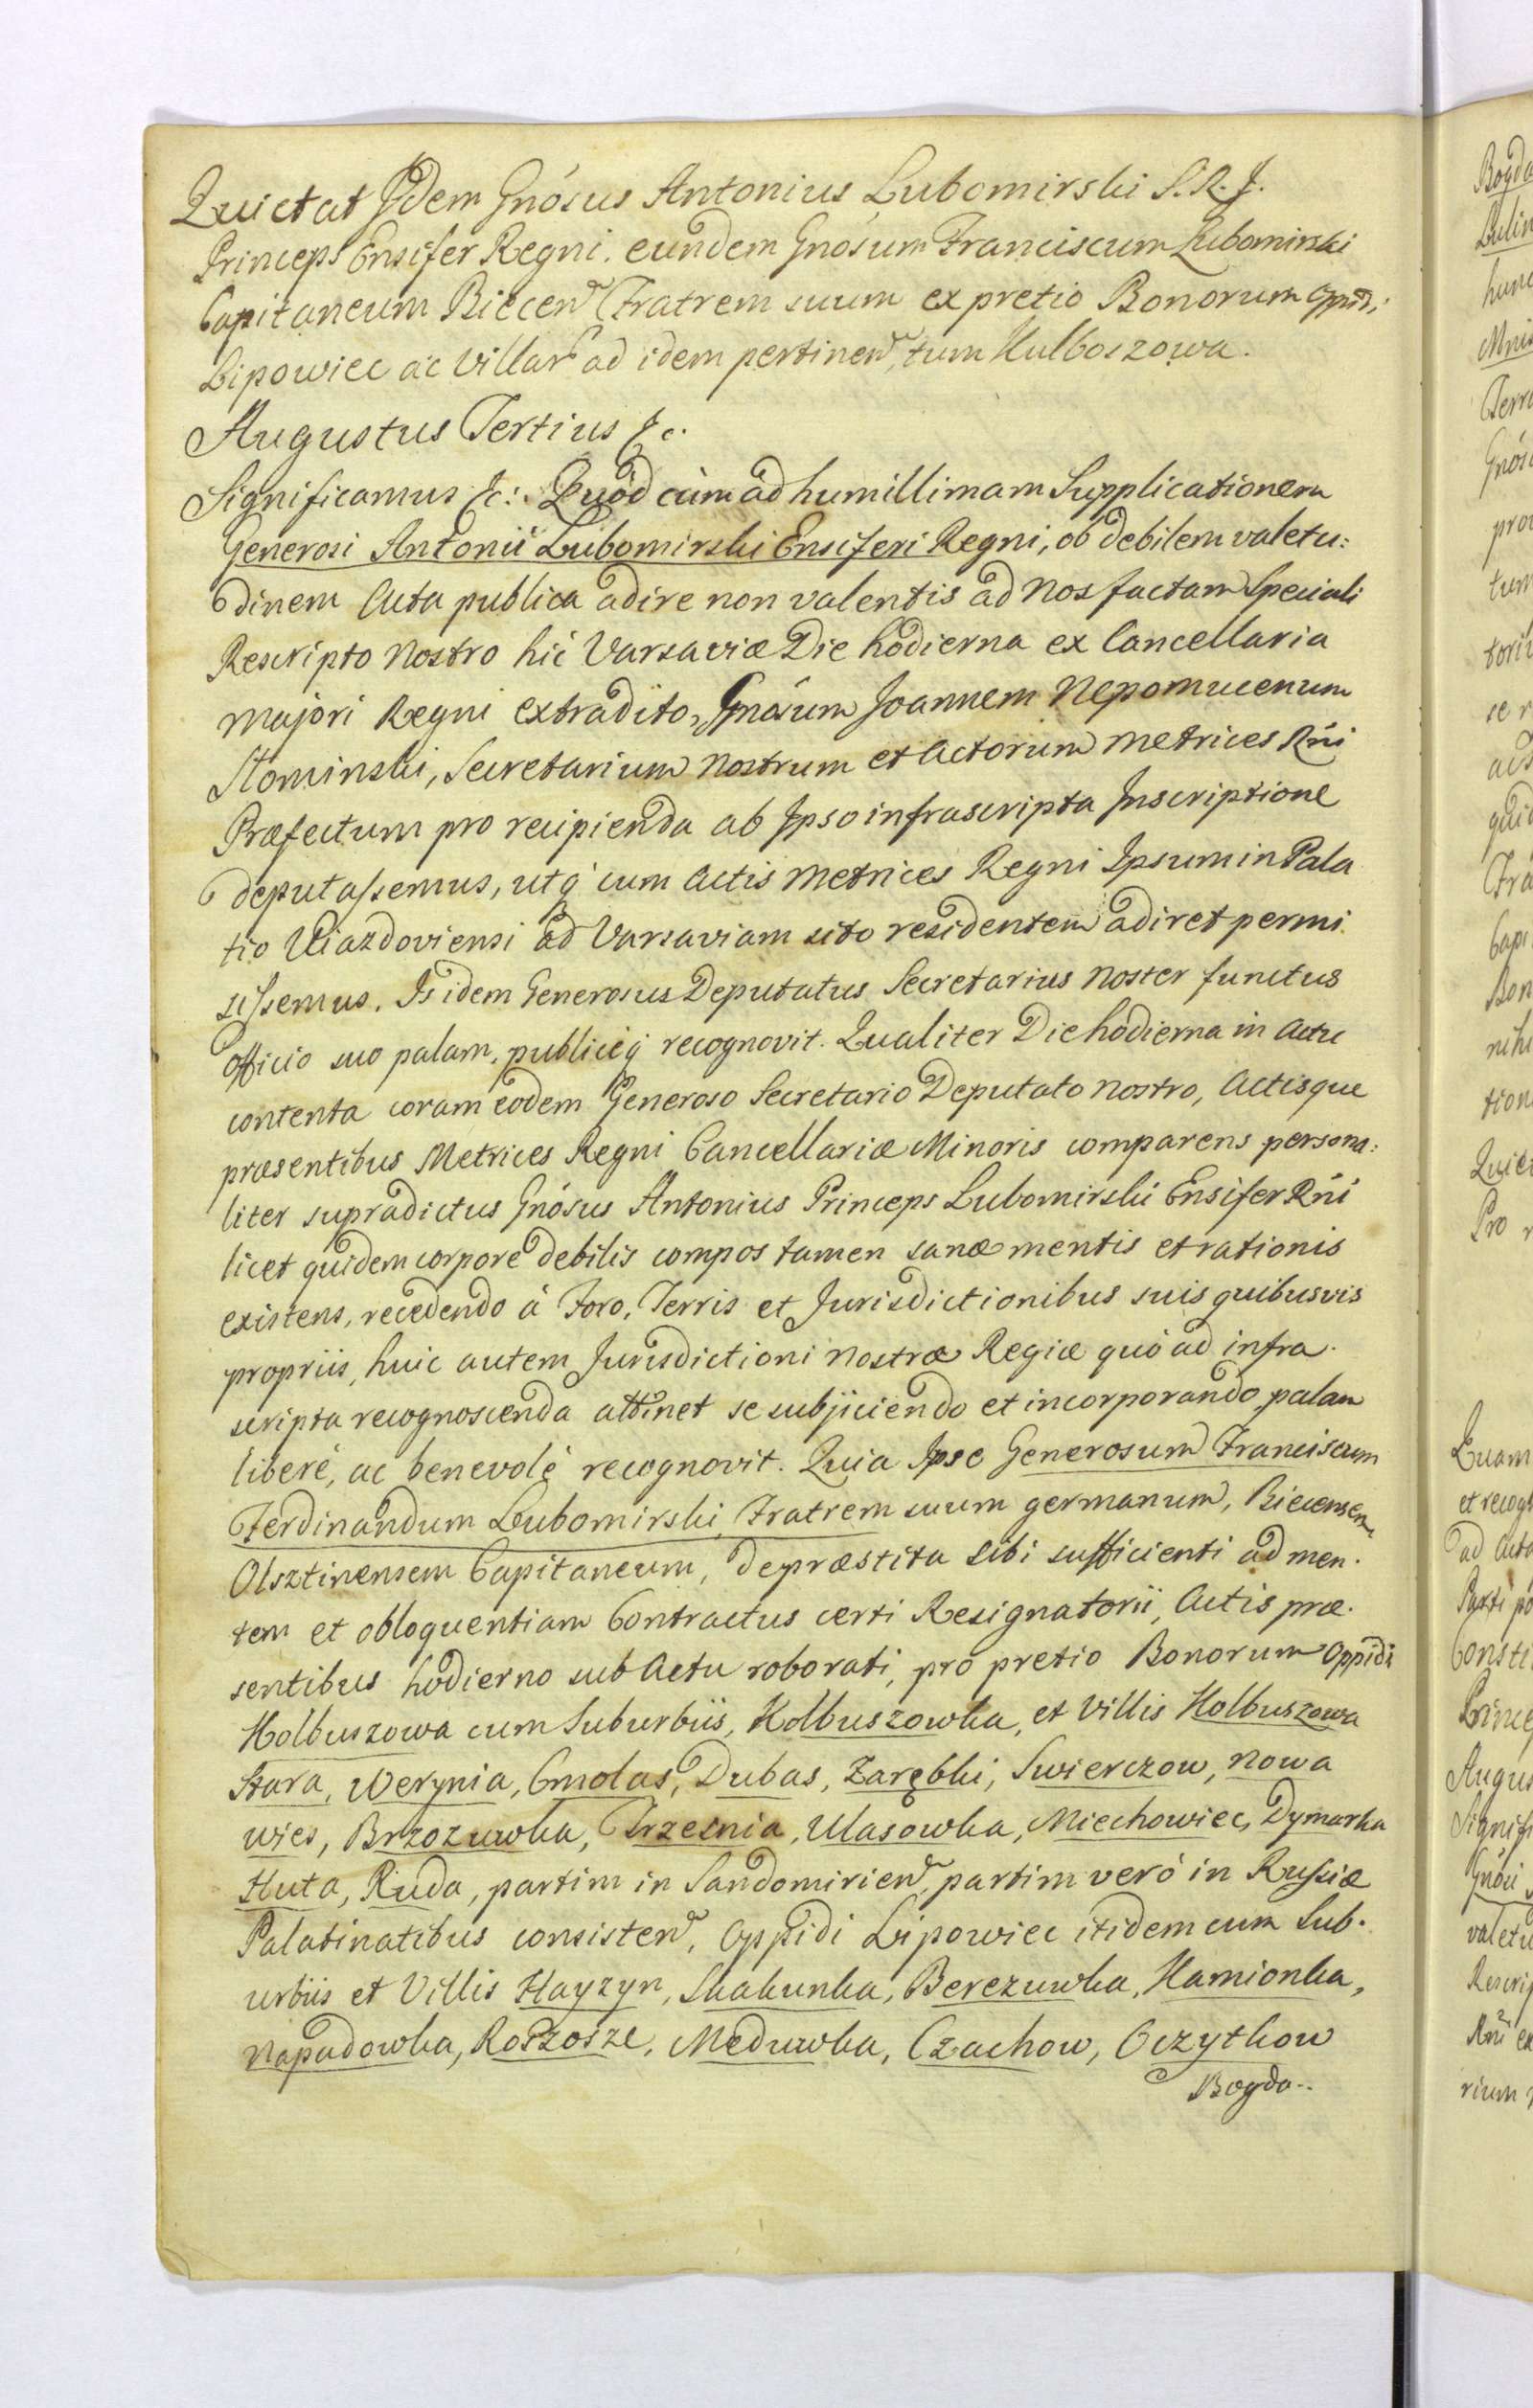 Quietat Idem Gnósus Antonius Lubomirski S. R. I.
Princeps Ensifer Regni. eundem Gnósum Franciscum Lubomirski
Capitaneum Biecen Fratrem suum ex pretio Bonorum Oppidi
Lipowiec ac Villar ad idem pertinen, tum Kulboszowa.
Augustus Tertius &c.
Significamus &c: Quód cùm ad humillimam Supplicationem
Generosi Antonii Lubomirski Ensiferi Regni, ob debilem valetu:
dinem Acta publica adire non valentis ad Nos factam Speciali
Rescripto Nostro hic Varsaviæ Die hodierna ex Cancellaria
Majori Regni extradito, Gnósum Joannem Nepomucenum
Słominski, Secretarium Nostrum et Actorum Metrices Rńi
Præfectum pro recipienda ab Ipso infrascripta Inscriptione
deputassemus, utq́ cum Actis Metrices Regni Ipsum in Pala
tio Uiazdoviensi ad Varsaviam sito residentem adiret permi
sissemus. Is idem Generosus Deputatus Secretarius Noster functus
officio suo palam, publicéq́ recognovit. Qualiter Die hodierna in Actu
contenta coram eodem Generoso Secretario Deputato Nostro, Actisque
præsentibus Metrices Regni Cancellariæ Minoris comparens persona:
liter supradictus Gnósus Antonius Princeps Lubomirski Ensifer Rńi
licet quidem corpore debilis compos tamen sanæ mentis et rationis
existens, recedendo á Foro, Terris et Jurisdictionibus suis quibusvis
propriis, huic autem Jurisdictioni Nostræ Regiæ quó ad infra.
scripta recognoscenda attinet se subjiciendo et incorporando, palam
liberé, ac benevolé recognovit. Quia Ipse Generosum Franciscum
Ferdinandum Lubomirski Fratrem suum germanum, Biecensem
Olsztinensem Capitaneum, de præstita Sibi sufficienti ad men.
tem et obloquentiam Contractus certi Resignatorii, Actis præ.
sentibus hodierno sub Actu roborati, pro pretio Bonorum Oppidi
Kolbuszowa cum Suburbiis, Kolbuszowka, et Villis Kolbuszowa
Stara, Werynia, Cmolas, Dubas, Zarębki, Swierczow, Nowa
wies, Brzozuwka, Trzesnia, Ulasowka, Miechowiec, Dymarka
Huta, Ruda, partim in Sandomirien, partim veró in Russiæ
Palatinatibus consisten, Oppidi Lipowiec itidem cum Sub.
urbiis et Villis Hayzyn, Skakunka, Berezuwka, Kamionka,
Napadowka, Roszosze, Meduwka, Czachow, Oczytkow
Bogda..